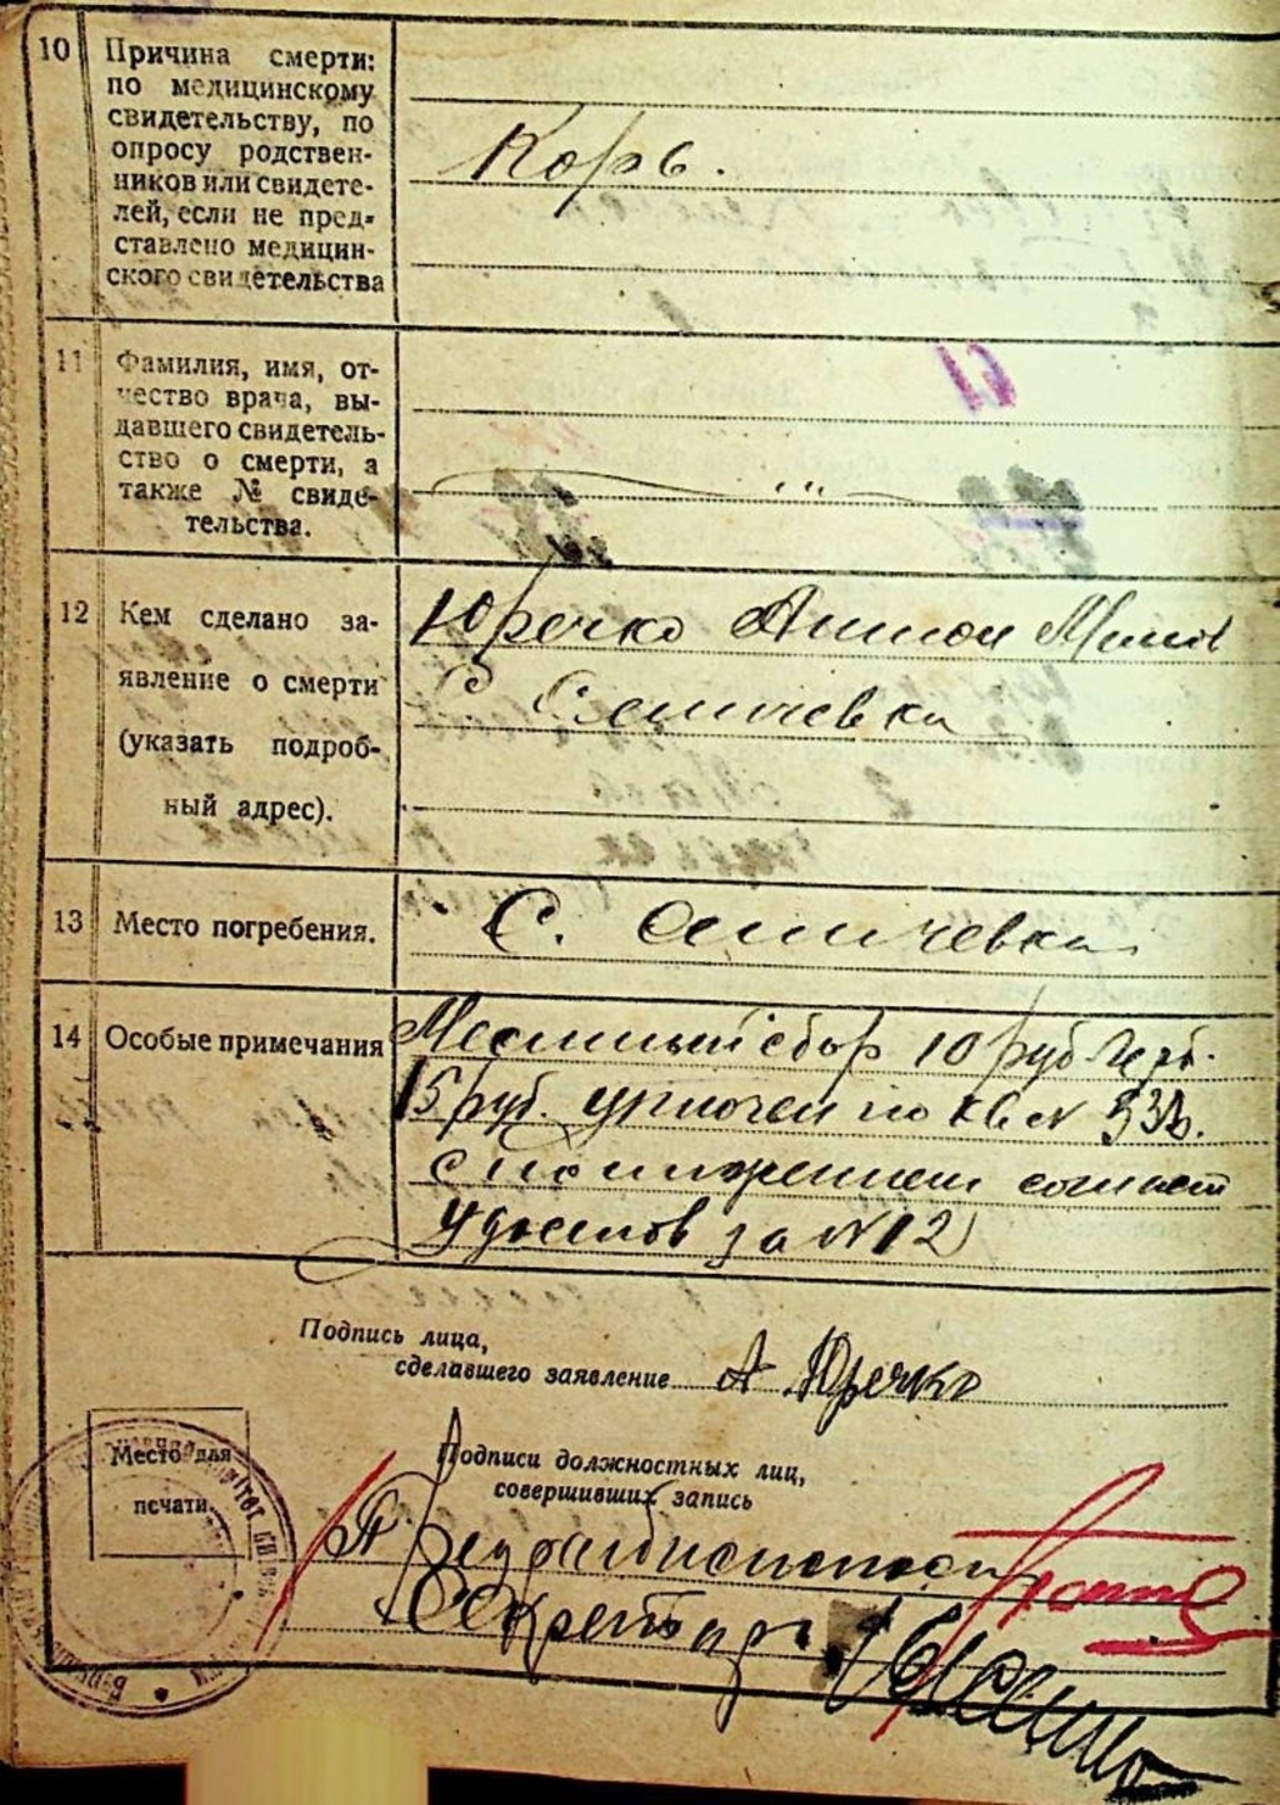 10 Причина смерти:
по медицинскому
свидетельству, по
опросу родствен-
ников или свидете-
лей, если не пред-
ставлено медицин-
ского свидетельства
Корь.
11 Фамилия, имя, от-
чество врача, вы-
давшего свидетель-
ство о смерти, а
также № свиде-
тельства.
12 Кем сделано за-
явление о смерти
(указать подроб-
ный адрес).
Юречко Антон
С
13 Место погребения.
С.
14 Особые примечания
Местный сбор 10 руб
15 руб. по кв №
удостов за N 12
Подпись лица,
сделавшего заявление А Юречко
Место для
печати.
Подписи должностных лиц,
совершивших запись
Секретарь